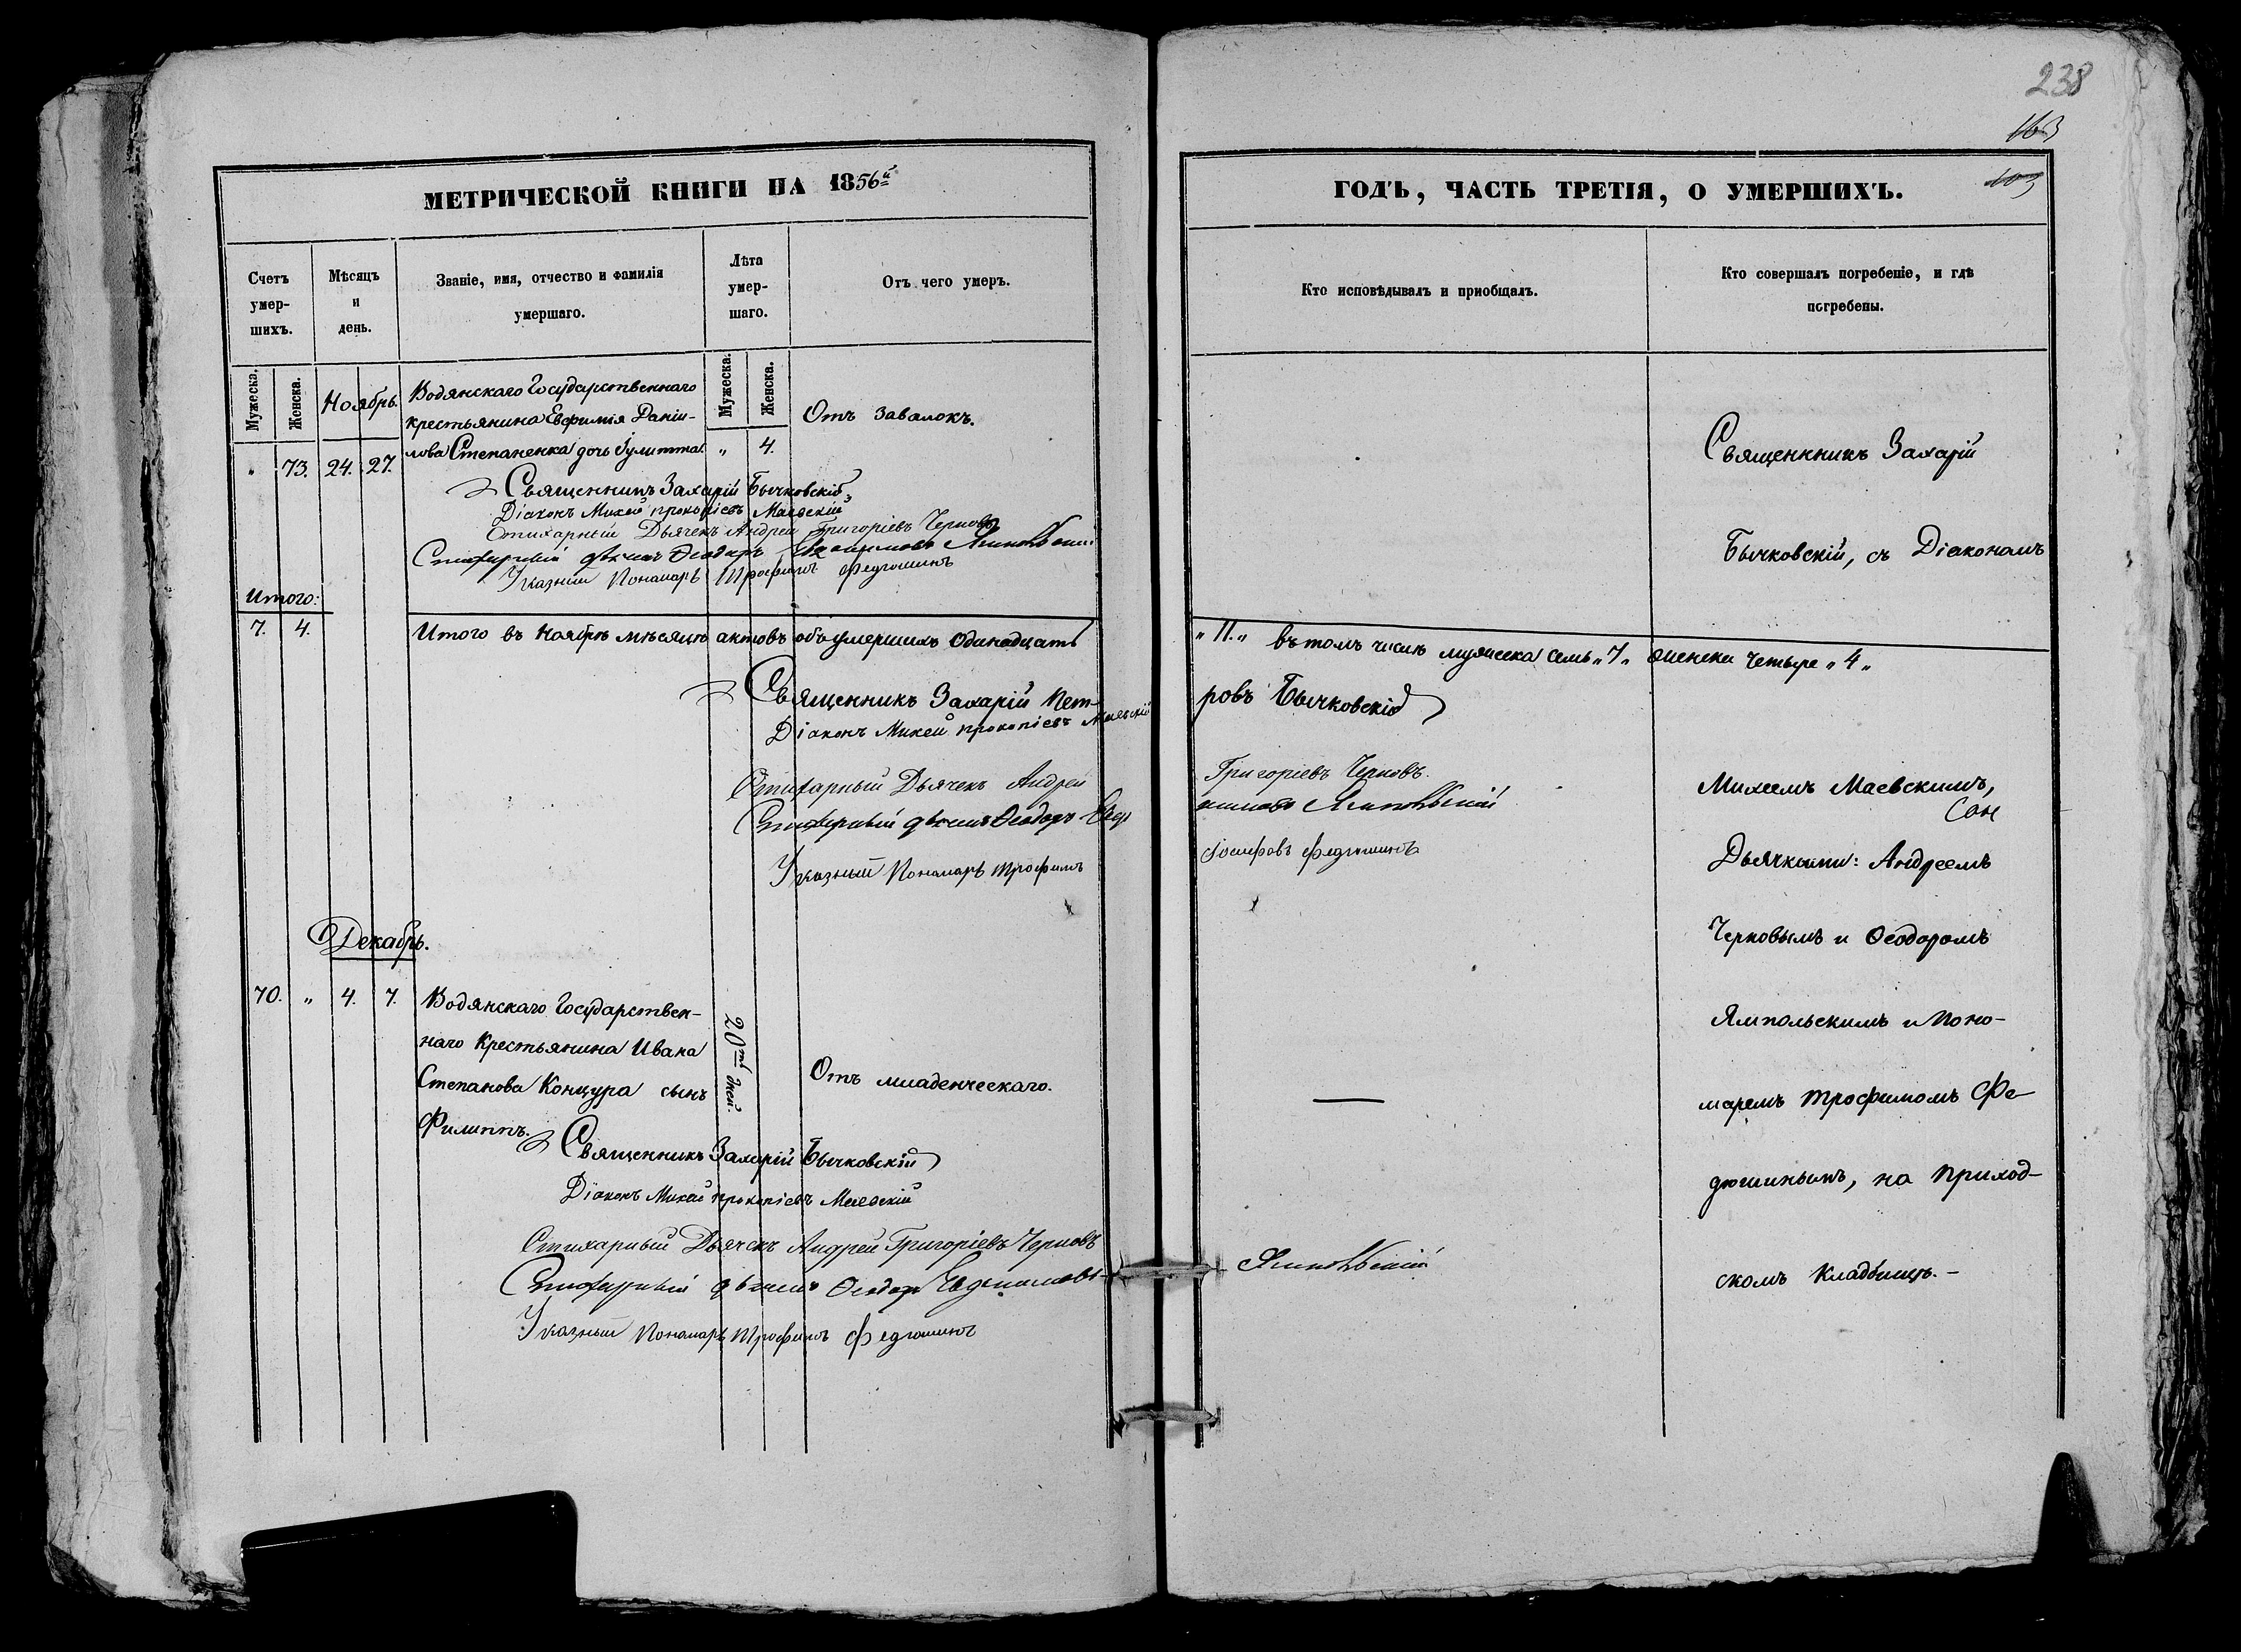 238
163
МЕТРИЧЕСКОЙ КНИГИ НА 1856й
Счетъ умер-шихъ.
Мѣсяцъ и день.
Званіе, имя, отчество и фамилія умершаго.
Лѣта умер-шаго.
Отъ чего умеръ.
Мужеска.
Женска.
Ноябрь.
Мужеска.
Женска.
Водянскаго Государственнаго
крестьянина Евфимія Даніи-
лова Степаненка дочь Іулитта.
" 73. 24. 27.
" 4.
Отъ завалокъ.
Священникъ Захарій Бычковскій
Діаконъ Михей Прокопіевъ Маевскій
Стихарный Дьячекъ Андрей Григоріевъ Черновъ
Стихарный дьячекъ Ѳеодоръ Ямпольскій
Указный Пономарь Трофимъ Федюшинъ
Итого:
7. 4.
Итого въ Ноябрѣ мѣсяцѣ актовъ объ умершихъ одинадцать
Священникъ Захарій Пет-
Діаконъ Михей Прокопіевъ Маевскій
Стихарный Дьячекъ Андрей
Стихарный дьячекъ Ѳеодоръ
Указный Пономарь Трофимъ
Декабрь.
70. " 4. 7.
Водянскаго Государствен-
наго Крестьянина Ивана
Степанова Концура сынъ
Филиппъ.
20ть дней.
Отъ младенческаго.
Священникъ Захарій Бычковскій
Діаконъ Михей Прокопіевъ Маевскій
Стихарный Дьячекъ Андрей Григоріевъ Черновъ
Стихарный дьячекъ Ѳеодоръ
Указный Пономарь Трофимъ Федюшинъ
ГОДЪ, ЧАСТЬ ТРЕТІЯ, О УМЕРШИХЪ.
Кто исповѣдывалъ и пріобщалъ.
Кто совершалъ погребеніе, и гдѣ
погребены.
"11." въ томъ числѣ мужеска семь "7" женска четыре "4"
ровъ Бычковскій
Григоріевъ Черновъ.
Ямпольскій
Іосифовъ Федюшинъ
Ямпольскій
Священникъ Захарій
Бычковскій, съ Діакономъ
Михеемъ Маевскимъ,
Дьячками: Андреемъ
Черновымъ и Ѳеодоромъ
Ямпольскимъ и Поно-
маремъ Трофимомъ Фе-
дюшинымъ, на приход-
скомъ кладбищѣ.-